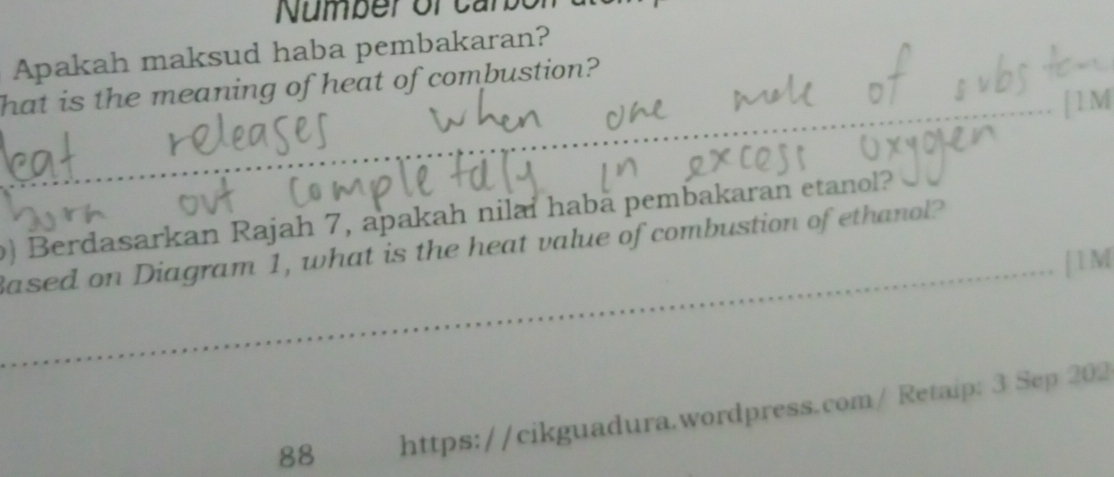 Number of carbon
Apakah maksud haba pembakaran?
hat is the meaning of heat of combustion?
eat releases when one mole of substan
[1M
burn out completaly in excess oxygen
b) Berdasarkan Rajah 7, apakah nilai haba pembakaran etanol?
Based on Diagram 1, what is the heat value of combustion of ethanol?
[1M
88 https://cikguadura.wordpress.com/ Retaip: 3 Sep 202